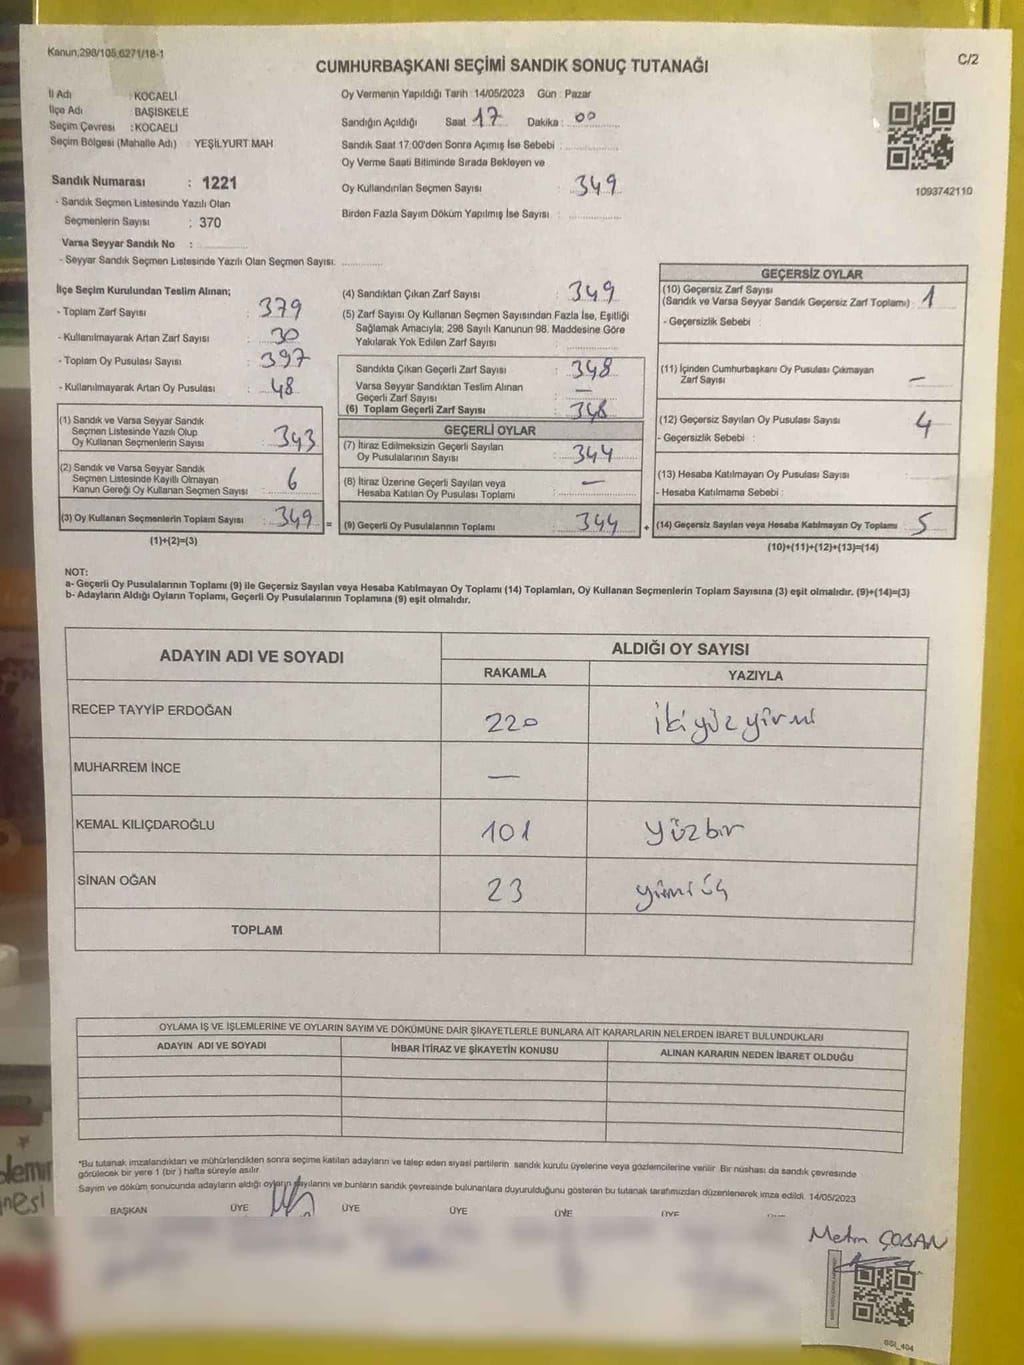 Kanun;298/105,6271/18-1
C/2
CUMHURBAŞKANI SEÇİMİ SANDIK SONUÇ TUTANAĞI
İl Adı : KOCAELİ
İlçe Adı BAŞİSKELE
Seçim Çevresi : KOCAELİ
Seçim Bölgesi (Mahalle Adı) : YEŞİLYURT MAH
Sandık Numarası : 1221
- Sandık Seçmen Listesinde Yazılı Olan
Seçmenlerin Sayısı : 370
Varsa Seyyar Sandık No :
- Seyyar Sandık Seçmen Listesinde Yazılı Olan Seçmen Sayısı:
Oy Vermenin Yapıldığı Tarih : 14/05/2023 Gün : Pazar
Sandığın Açıldığı Saat 17 Dakika : 00
Sandık Saat 17.00'den Sonra Açılmış İse Sebebi :
Oy Verme Saati Bitiminde Sırada Bekleyen ve
Oy Kullandırılan Seçmen Sayısı : 349
Birden Fazla Sayım Döküm Yapılmış İse Sayısı :
1093742110
İlçe Seçim Kurulundan Teslim Alınan;
- Toplam Zarf Sayısı : 379
- Kullanılmayarak Artan Zarf Sayısı : 30
- Toplam Oy Pusulası Sayısı : 397
- Kullanılmayarak Artan Oy Pusulası : 48
(1) Sandık ve Varsa Seyyar Sandık
Seçmen Listesinde Yazılı Olup
Oy Kullanan Seçmenlerin Sayısı : 343
(2) Sandık ve Varsa Seyyar Sandık
Seçmen Listesinde Kayıtlı Olmayan
Kanun Gereği Oy Kullanan Seçmen Sayısı : 6
(3) Oy Kullanan Seçmenlerin Toplam Sayısı : 349 =
(1)+(2)=(3)
(4) Sandıktan Çıkan Zarf Sayısı : 349
(5) Zarf Sayısı Oy Kullanan Seçmen Sayısından Fazla İse, Eşitliği
Sağlamak Amacıyla; 298 Sayılı Kanunun 98. Maddesine Göre
Yakılarak Yok Edilen Zarf Sayısı :
Sandıkta Çıkan Geçerli Zarf Sayısı : 348
Varsa Seyyar Sandıktan Teslim Alınan
Geçerli Zarf Sayısı : —
(6) Toplam Geçerli Zarf Sayısı : 348
GEÇERLİ OYLAR
(7) İtiraz Edilmeksizin Geçerli Sayılan
Oy Pusulalarının Sayısı : 344
(8) İtiraz Üzerine Geçerli Sayılan veya
Hesaba Katılan Oy Pusulası Toplamı : —
(9) Geçerli Oy Pusulalarının Toplamı : 344 +
GEÇERSİZ OYLAR
(10) Geçersiz Zarf Sayısı
(Sandık ve Varsa Seyyar Sandık Geçersiz Zarf Toplamı) : 1
- Geçersizlik Sebebi :
(11) İçinden Cumhurbaşkanı Oy Pusulası Çıkmayan
Zarf Sayısı : —
(12) Geçersiz Sayılan Oy Pusulası Sayısı : 4
- Geçersizlik Sebebi :
(13) Hesaba Katılmayan Oy Pusulası Sayısı :
- Hesaba Katılmama Sebebi :
(14) Geçersiz Sayılan veya Hesaba Katılmayan Oy Toplamı : 5
(10)+(11)+(12)+(13)=(14)
NOT:
a- Geçerli Oy Pusulalarının Toplamı (9) ile Geçersiz Sayılan veya Hesaba Katılmayan Oy Toplamı (14) Toplamları, Oy Kullanan Seçmenlerin Toplam Sayısına (3) eşit olmalıdır. (9)+(14)=(3)
b- Adayların Aldığı Oyların Toplamı, Geçerli Oy Pusulalarının Toplamına (9) eşit olmalıdır.
ADAYIN ADI VE SOYADI ALDIĞI OY SAYISI
RAKAMLA YAZIYLA
RECEP TAYYİP ERDOĞAN 220 ikiyüzyirmi
MUHARREM İNCE —
KEMAL KILIÇDAROĞLU 101 yüzbir
SİNAN OĞAN 23 yirmiüç
TOPLAM
OYLAMA İŞ VE İŞLEMLERİNE VE OYLARIN SAYIM VE DÖKÜMÜNE DAİR ŞİKAYETLERLE BUNLARA AİT KARARLARIN NELERDEN İBARET BULUNDUKLARI
ADAYIN ADI VE SOYADI İHBAR İTİRAZ VE ŞİKAYETİN KONUSU ALINAN KARARIN NEDEN İBARET OLDUĞU
*Bu tutanak imzalandıktan ve mühürlendikten sonra seçime katılan adayların ve talep eden siyasi partilerin sandık kurulu üyelerine veya gözlemcilerine verilir. Bir nüshası da sandık çevresinde
görülecek bir yere 1 (bir ) hafta süreyle asılır.
Sayım ve döküm sonucunda adayların aldığı oyların sayılarını ve bunların sandık çevresinde bulunanlara duyurulduğunu gösteren bu tutanak tarafımızdan düzenlenerek imza edildi. 14/05/2023
BAŞKAN ÜYE ÜYE ÜYE ÜYE ÜYE
Metin ÇOBAN